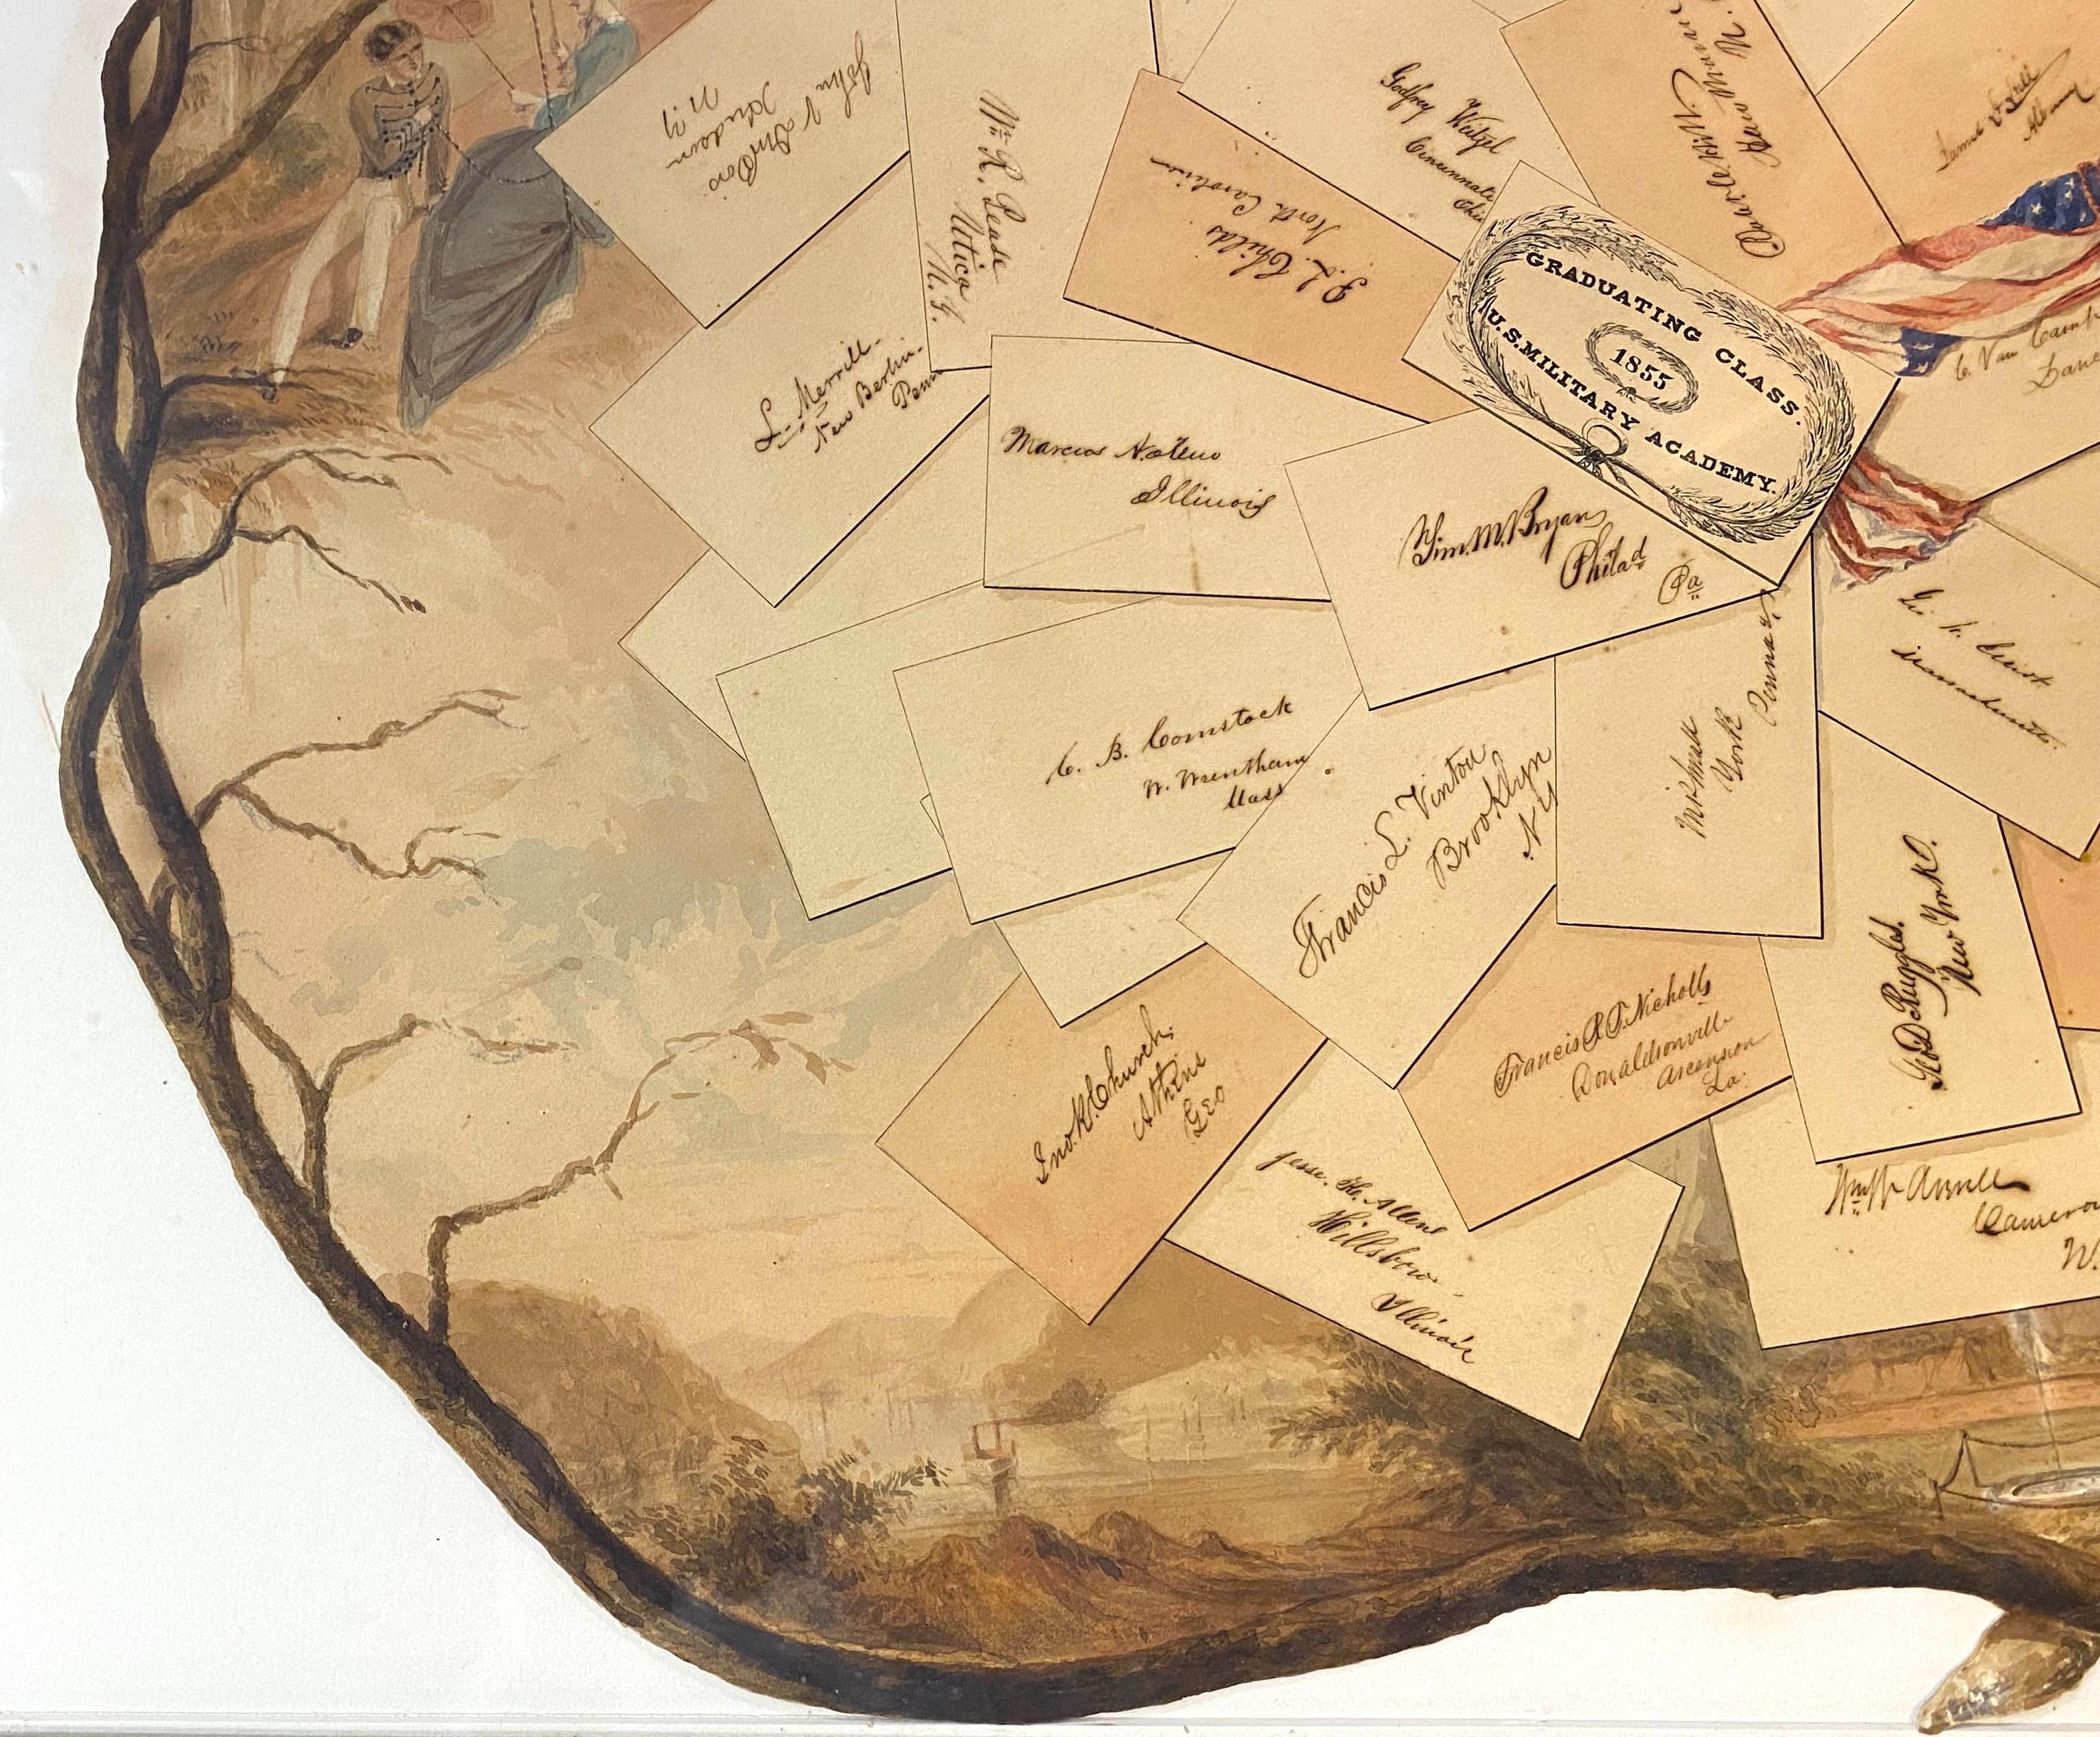 John V
Hudson
N.Y
Wm R. Pease
Utica
N.Y.
J. L. Childs
North Carolina
Godfrey Weitzel
Cincinnati
Ohio
Charles
James
Albany
GRADUATING CLASS.
1855
U.S. MILITARY ACADEMY.
C. Van Camp
L. Merrill.
New Berlin.
Penn
Marcus
Illinois
Wm. M. Bryan
Philad
Pa
C. B. Comstock
W. Wrentham
Mass
Francis L. Vinton
Brooklyn
N Y
York
Penna
Massachusetts.
Geo D Ruggles.
New York.
Francis R. T. Nicholls
Donaldsonville
Ascension
La.
Jno. R. Church.
Athens
Geo
Jesse. K. Allen
Hillsboro
Illinois
Wm W Averell
Cameron